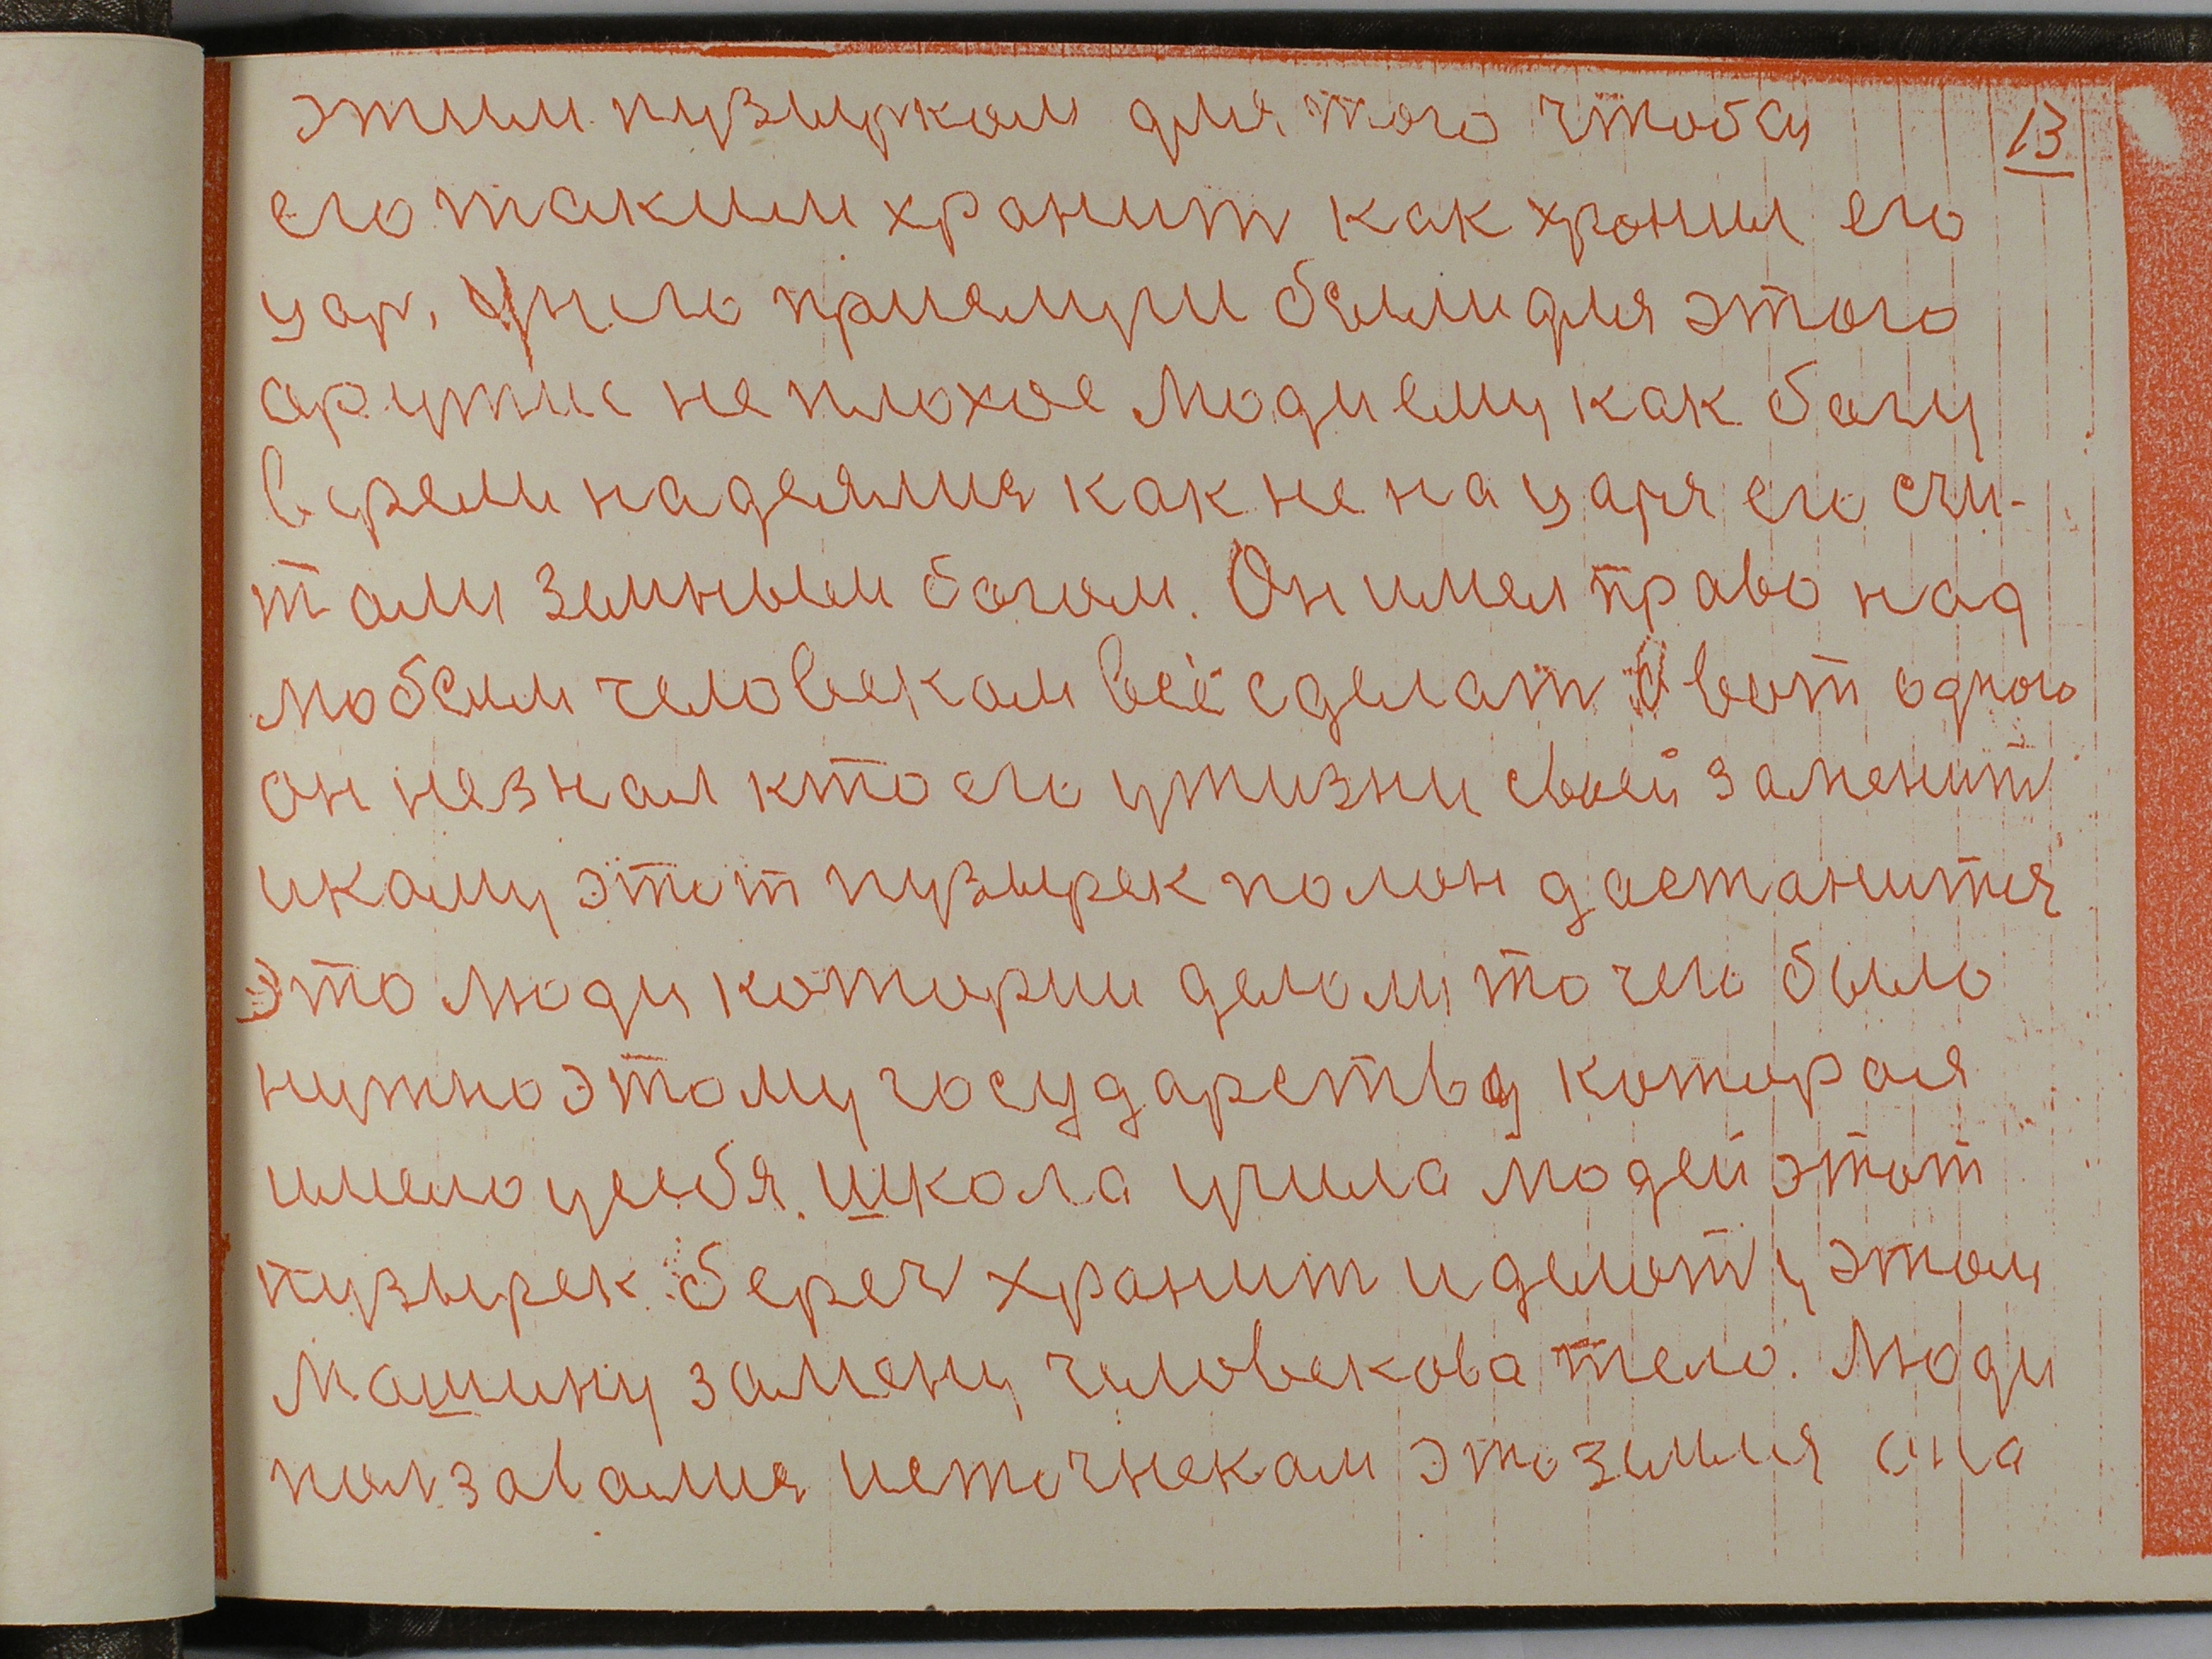 этим пузырком для того чтобы
13
его таким хранит как хранил его
цар, У него приемци были для этого
аружие не плохое люди ему как богу
верели надеялися как не на царя его счи-
тали земным богом. Он имел право над
любым человеком всё сделат А вот одного
он незнал кто его ужизни своей заменит
икаму этот пузырек полон дастанится
Это люди котории делали то чего было
нужно этому государству которая
имело усебя. школа учила людей этот
пузырек береч хранит и делат у этом
машину замену человекова тело. Люди
ползавалися источнекам это земля она